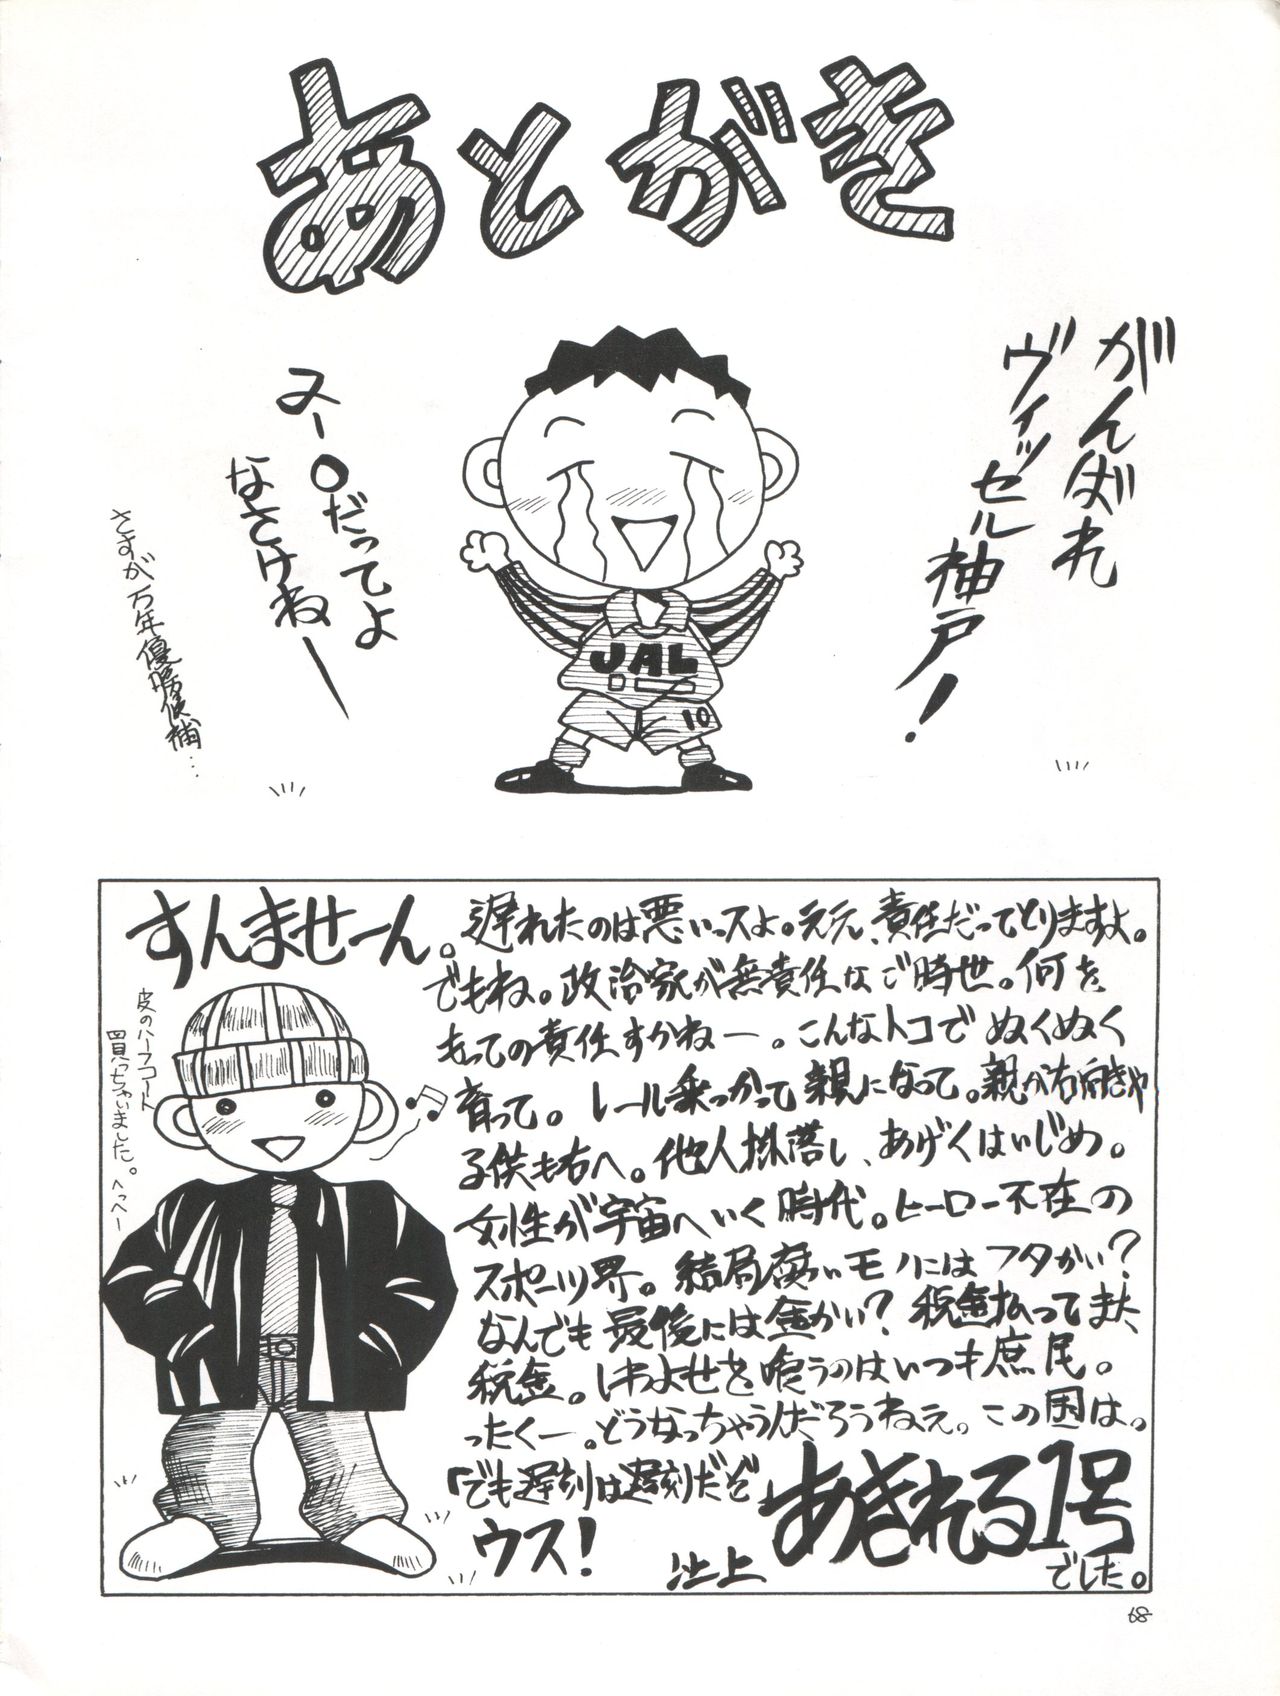 あとがき
がんばれ
ヴィッセル神戸!
ヌー○だってよ
なさけねー
さすが万年優勝候補…
JAL
10
すんませーん。
皮のハーフコート
買っちゃいました。へっへー
遅れたのは悪いっスよ。ええ、責任だってとりますよ。
でもね。政治家が無責任なご時世。何を
もっての責任すかねー。こんなトコでぬくぬく
育って。レール乗っかって親になって。親が右向きゃ
子供も右へ。他人蹴落し、あげくはいじめ。
女性が宇宙へいく時代。ヒーロー不在の
スポーツ界。結局腐いモノにはフタかい?
なんでも最後には金かい?税金払ってまた、
税金。しわよせを喰うのはいつも庶民。
ったくー。どうなっちゃうんだろうねえ。この国は。
「でも遅刻は遅刻だぞ」
ウス!
あきれる1号
池上
でした。
68